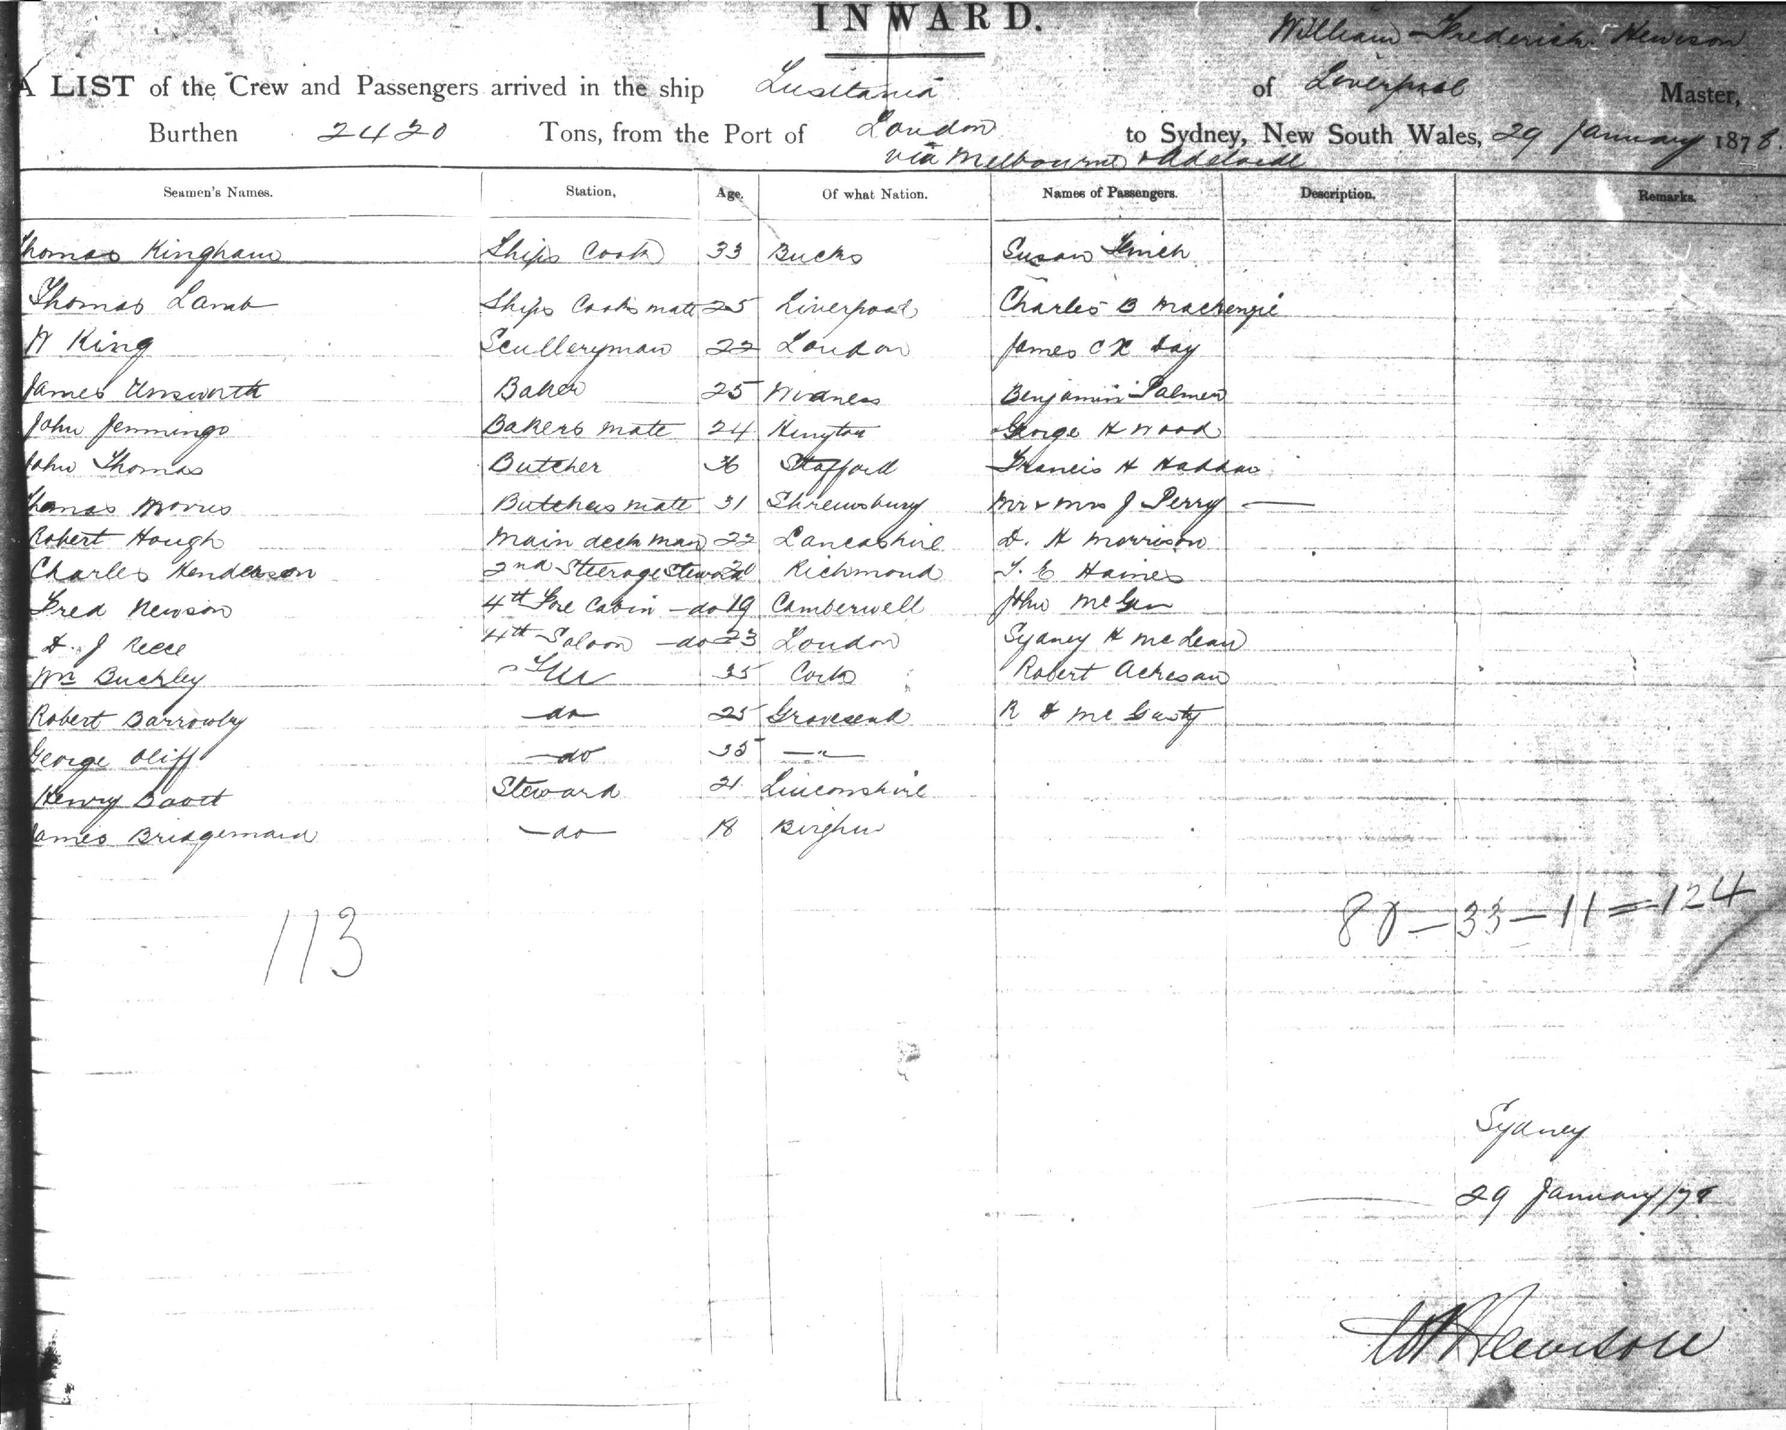 INWARD.
William Frederick Hewison
A LIST of the Crew and Passengers arrived in the ship Lusitania of Liverpool Master,
Burthen 2420 Tons, from the Port of London to Sydney, New South Wales, 29 January 1878.
via Melbourne & Adelaide
Seamen's Names. Station, Age. Of what Nation. Names of Passengers. Description. Remarks.
Thomas Kingham Ships Cook 33 Bucks Susan Finch
Thomas Lamb Ships Cooks mate 25 Liverpool Charles B Mackenzie
W King Sculleryman 22 London James C Day
James Unsworth Baker 25 Widness Benjamin Palmer
John Jennings Bakers mate 24 Kington George H Wood
John Thomas Butcher 36 Stafford Francis H Haddan
Thomas Morris Butchers mate 31 Shrewsbury Mr & Mrs J Perry —
Robert Hough Main deck man 22 Lancashire D. H Morrison
Charles Henderson 2nd Steerage Steward 20 Richmond T. E Haines
Fred Newson 4th Fore Cabin - do 19 Camberwell John
D. J Reece 4th Saloon - do 23 London Sydney H McLean
Wm Buckley 35 Cork Robert Acreson
Robert Barrowby - do - 25 Gravesend R
George Oliff - do 35 - " -
Henry Steward 21 Linconshire
James Bridgemard - do - 18
113
80 - 33 - 11 = 124
Sydney
29 January /78
W F Hewison